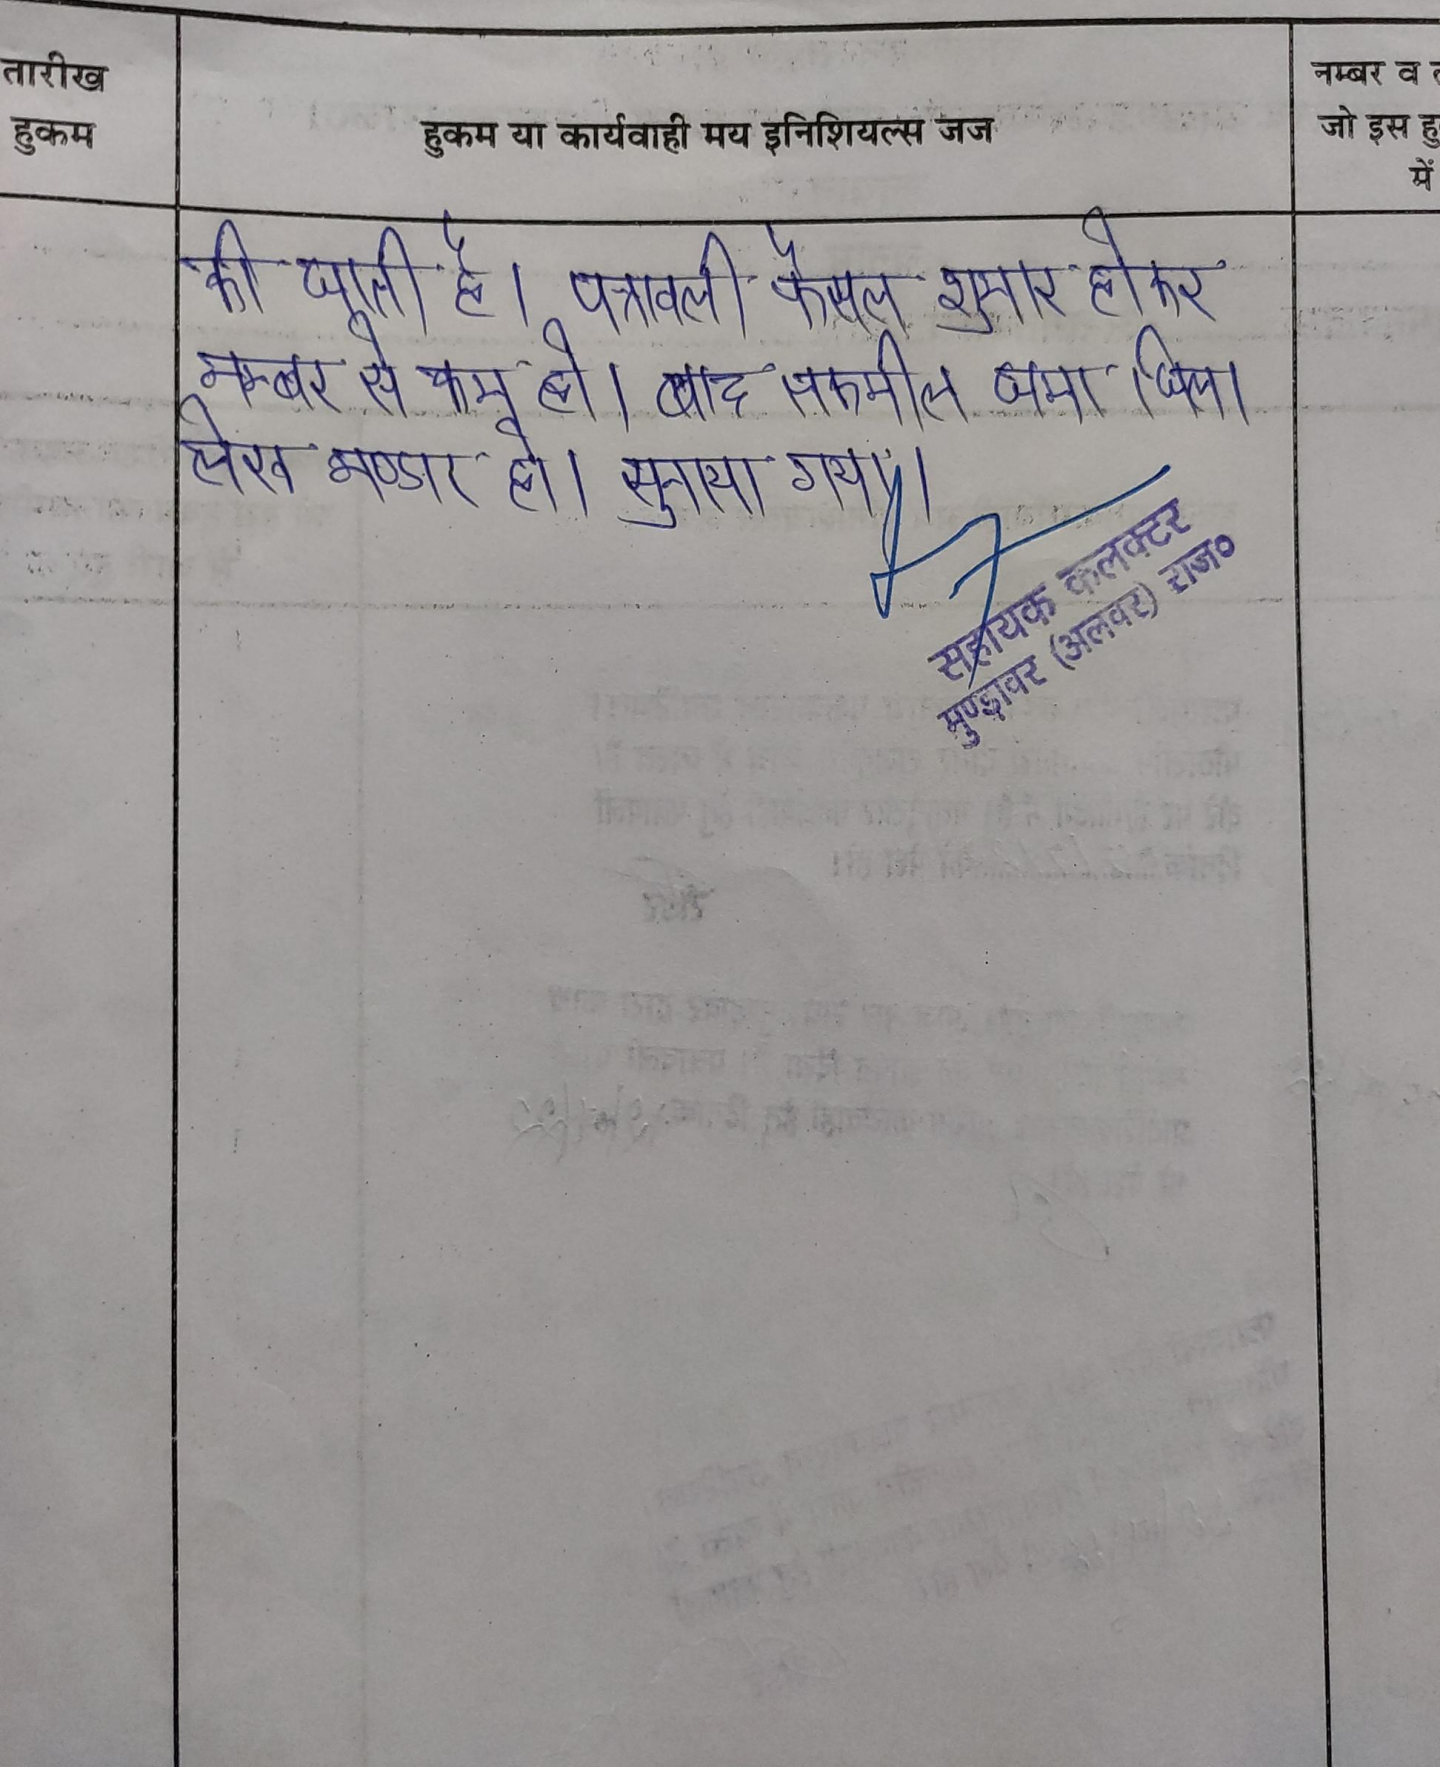 तारीख
हुकम
हुकम या कार्यवाही मय इनिशियल्स जज
नम्बर व
जो इस
में
की जाती है। पत्रावली फैसल शुमार होकर
नम्बर से कम हो। बाद तकमील जमा जिला
लेख भण्डार हो। सुनाया गया।
सहायक कलक्टर
मुण्डावर (अलवर) राज०